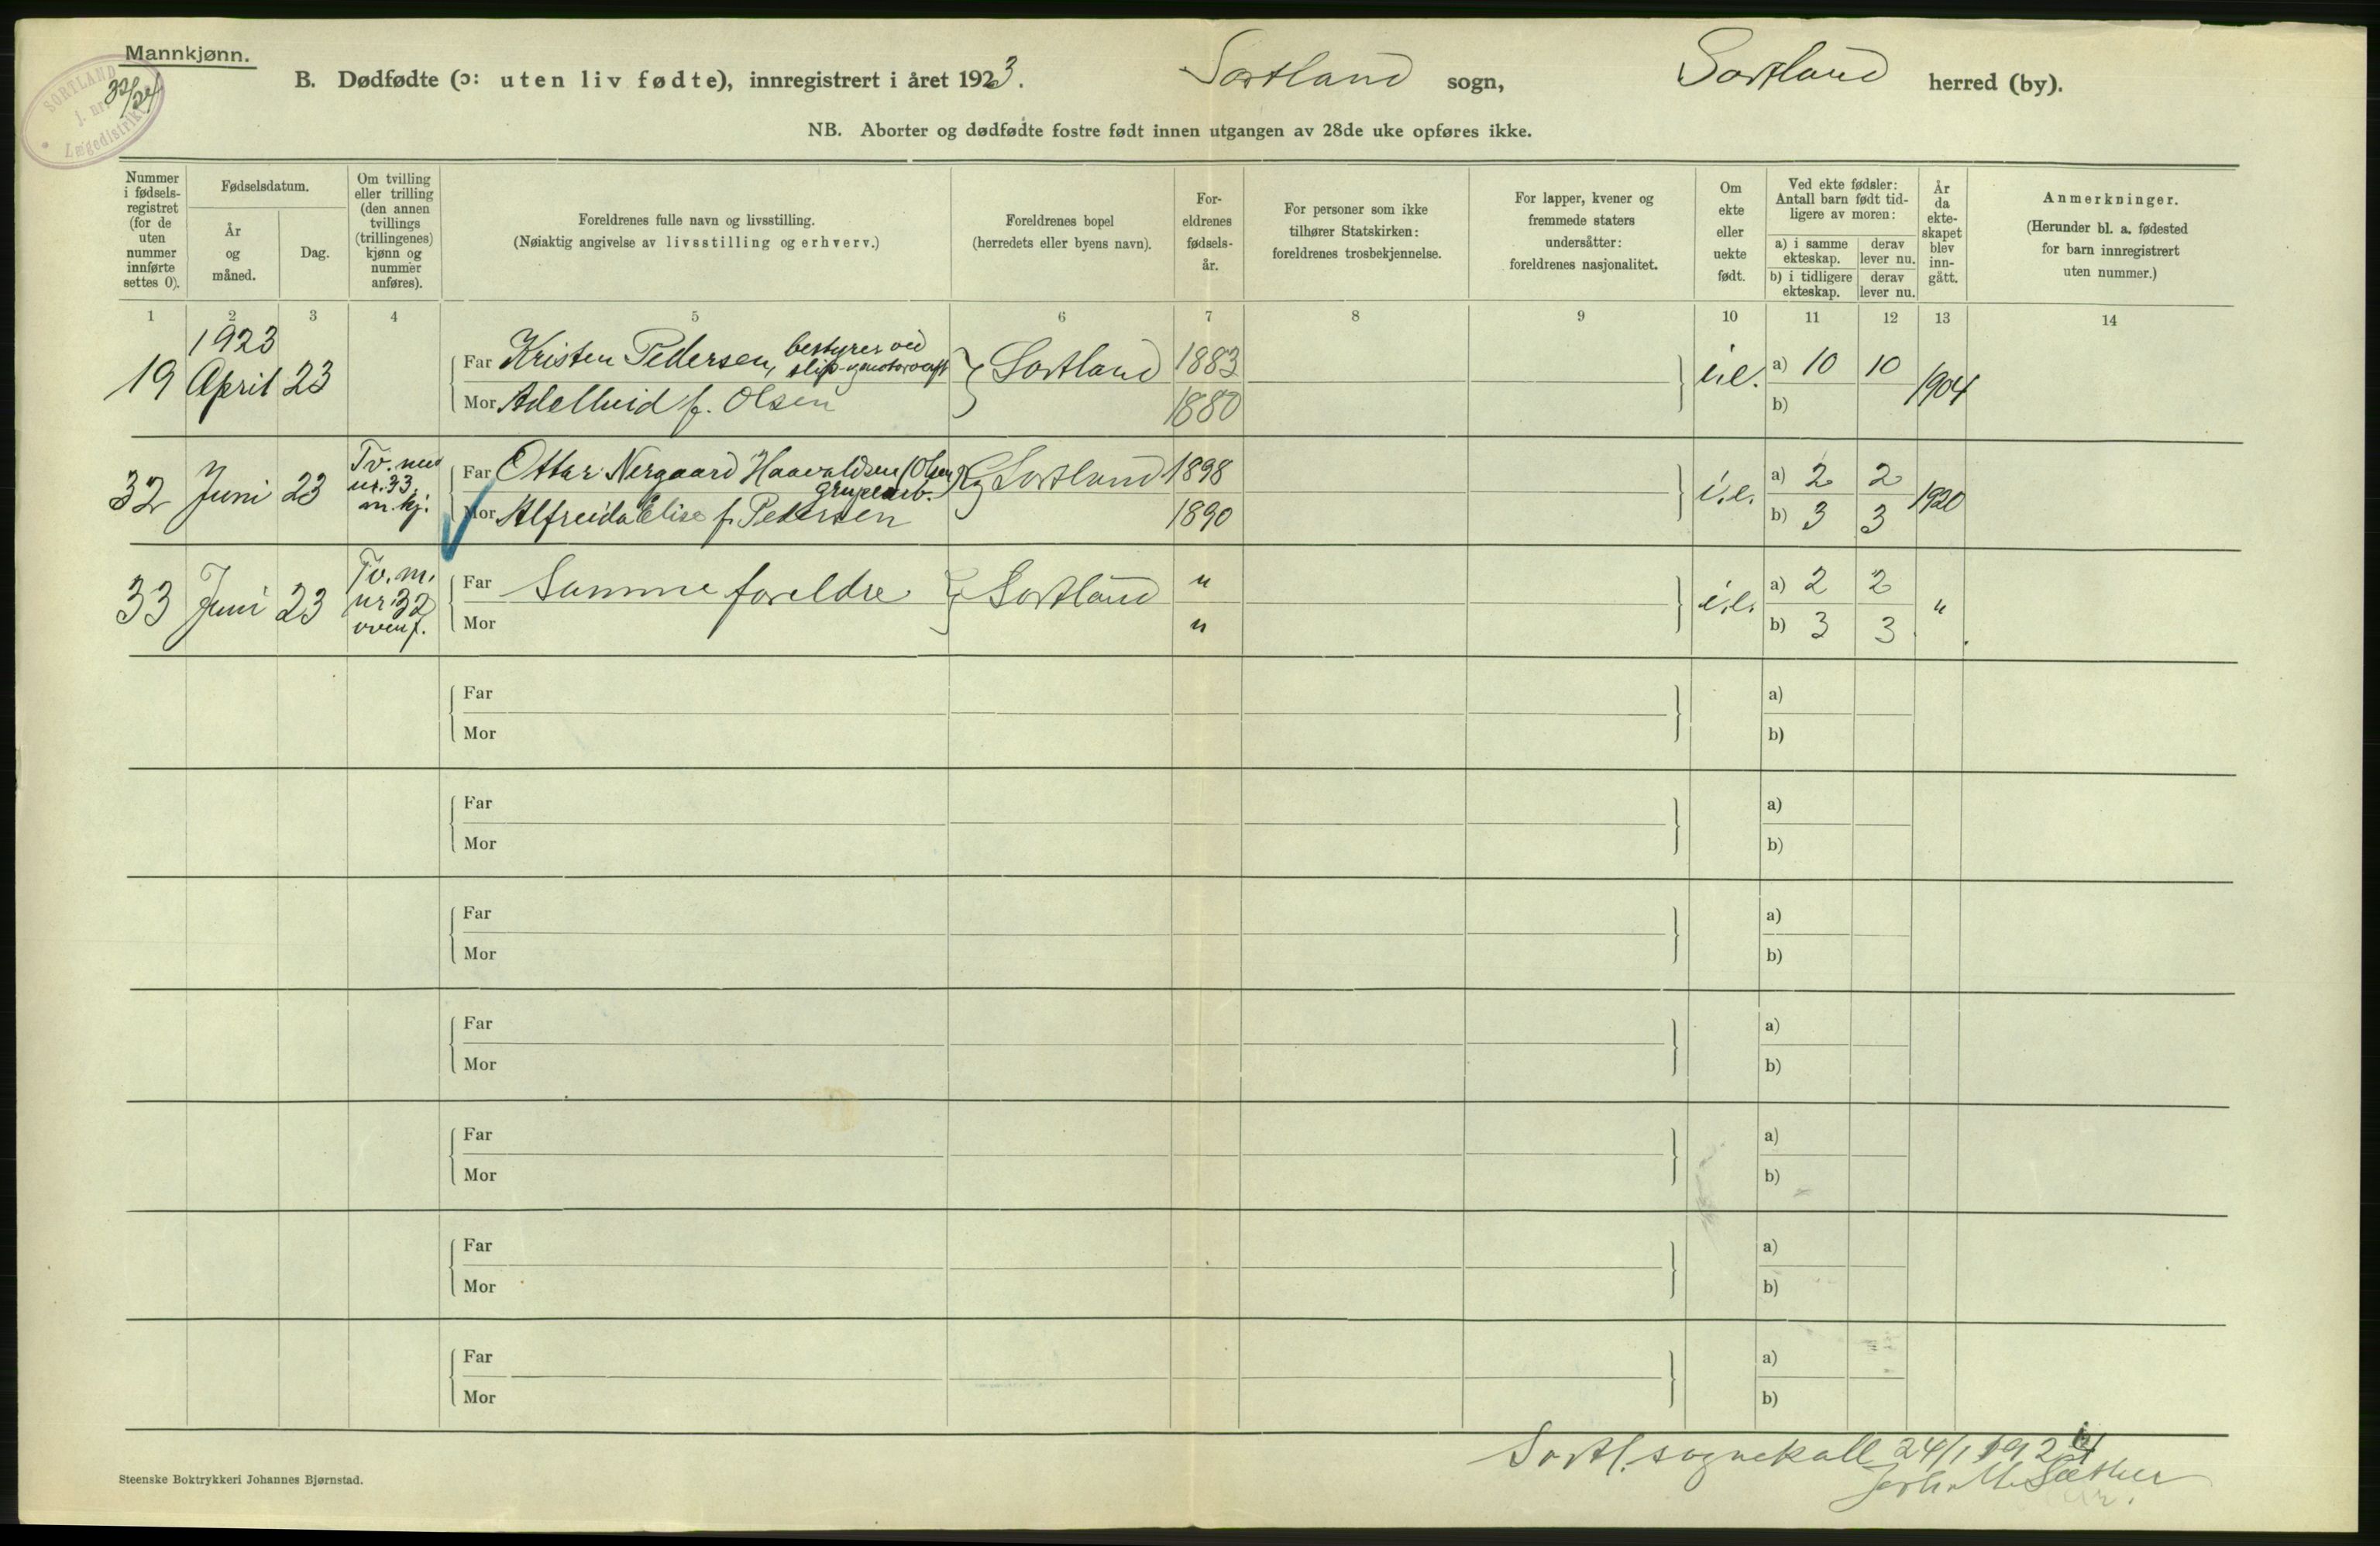 Mannkjønn.
SORTLAND
j. nr. 32/24
Lægedistrikt
B. Dødfødte (ɔ: uten liv fødte), innregistrert i året 1923. Sortland sogn, Sortland herred (by).
NB. Aborter og dødfødte fostre født innen utgangen av 28de uke opføres ikke.
Nummer
i fødsels-
registret
(for de
uten
nummer
innførte
settes 0).
Fødselsdatum.
År
og
måned.
Dag.
Om tvilling
eller trilling
(den annen
tvillings
(trillingenes)
kjønn og
nummer
anføres).
Foreldrenes fulle navn og livsstilling.
(Nøiaktig angivelse av livsstilling og erhverv.)
Foreldrenes bopel
(herredets eller byens navn).
For-
eldrenes
fødsels-
år.
For personer som ikke
tilhører Statskirken:
foreldrenes trosbekjennelse.
For lapper, kvener og
fremmede staters
undersåtter:
foreldrenes nasjonalitet.
Om
ekte
eller
uekte
født.
Ved ekte fødsler:
Antall barn født tid-
ligere av moren:
a) i samme
ekteskap.
derav
lever nu.
b) i tidligere
ekteskap.
derav
lever nu.
År
da
ekte-
skapet
blev
inn-
gått.
Anmerkninger.
(Herunder bl. a. fødested
for barn innregistrert
uten nummer.)
1 2 3 4 5 6 7 8 9 10 11 12 13 14
1923
19 April 23
Far Kristen Pedersen, bestyrer ved
slip- og motorverft
Mor Adelheid f. Olsen
Sortland
1883
1880
i.e.
a) 10 10
b)
1904
32 Juni 23
Tv. med
nr. 33.
m. kj.
Far Ottar Nergaard Haavaldsen (Olsen)
grubearb.
Mor Alfreida Elise f. Pedersen
Sortland
1898
1890
i.e.
a) 2 2
b) 3 3
1920
33 Juni 23
Tv. m.
nr. 32
ovenf.
Far Samme foreldre
Mor
Sortland
"
"
i.e.
a) 2 2
b) 3 3
"
Far
Mor
a)
b)
Far
Mor
a)
b)
Far
Mor
a)
b)
Far
Mor
a)
b)
Far
Mor
a)
b)
Far
Mor
a)
b)
Far
Mor
a)
b)
Sortl. sognekall 24/1 1924
Sæther
Steenske Boktrykkeri Johannes Bjørnstad.